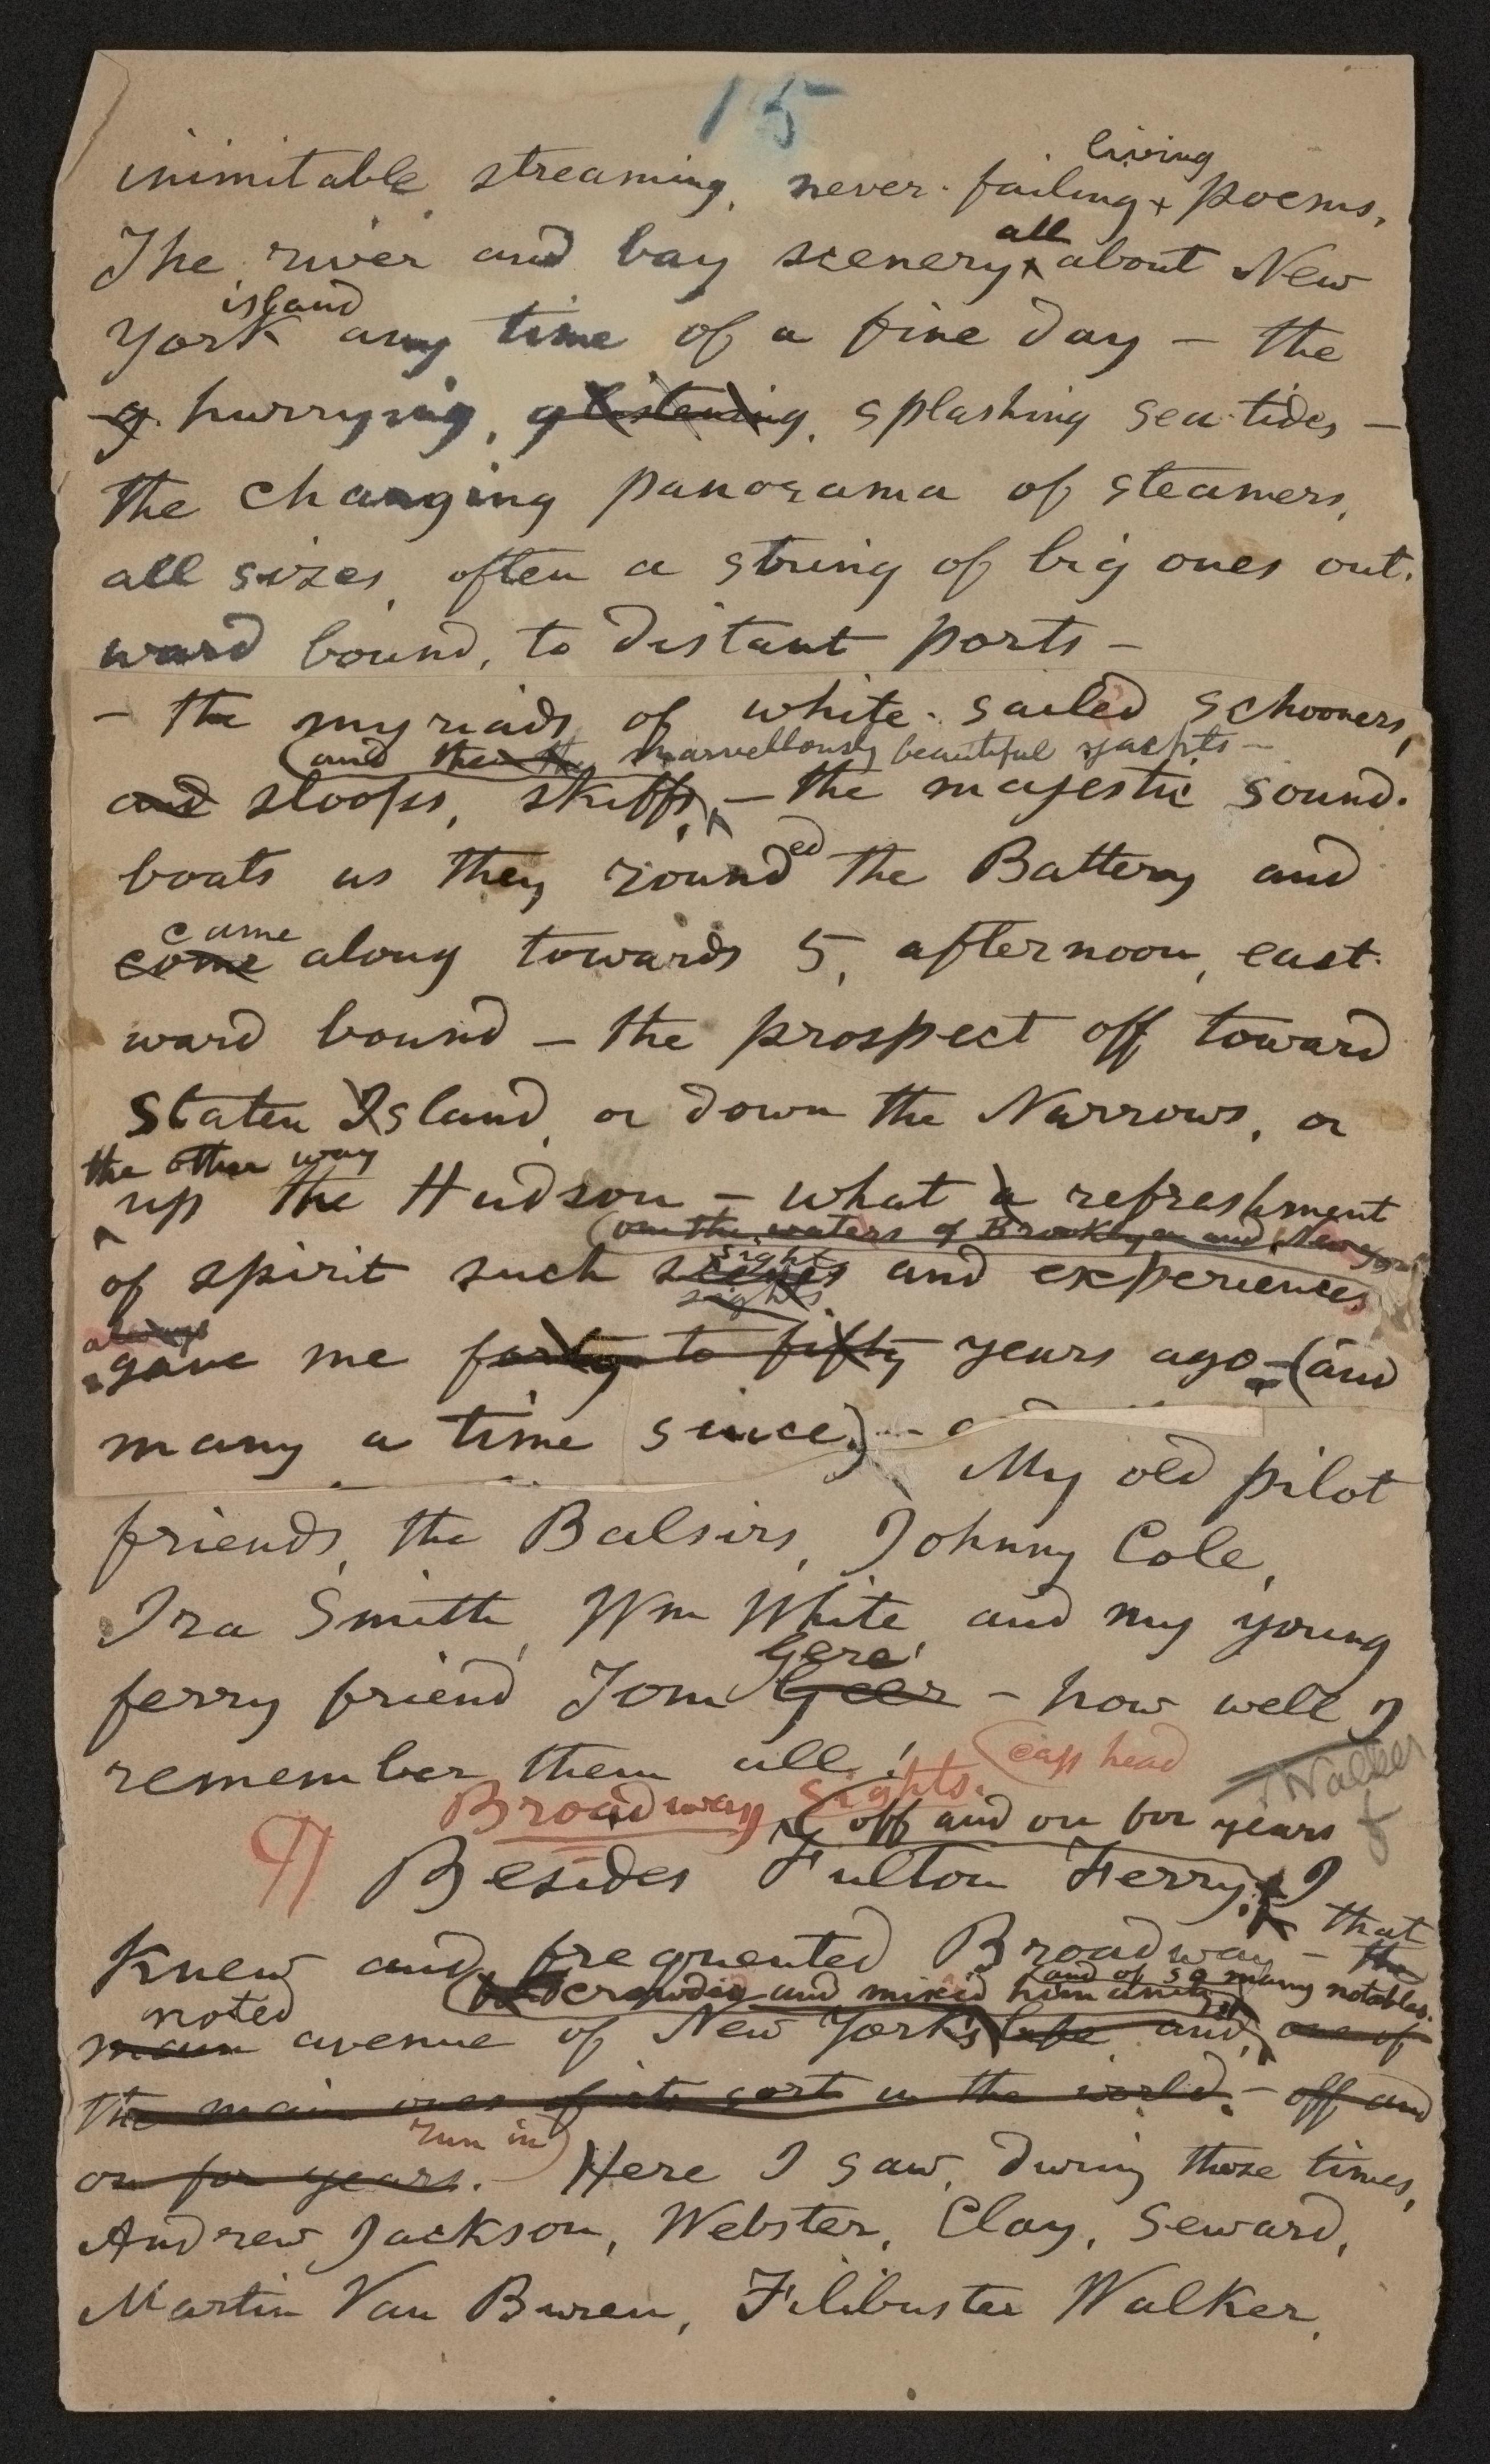 15
living
inimitable, streaming, never-failing poems.
all
The river and bay scenery about New
island
York any time of a fine day — the
g hurrying, glistening, splashing sea-tides —
the changing panorama of steamers,
all sizes, often a string of big ones out-
ward bound, to distant ports —
— the myriads of white-sailed schooners,
(and the the marvellously beautiful yachts —
and sloops, skiffs, — the majestic sound-
boats as they rounded the Battery and
came
come along towards 5, afternoon, east-
ward bound — the prospect off toward
Staten Island, or down the Narrows, or
the other way
up the Hudson — what a refreshment
(on the waters of Brooklyn and New York
sights
of spirit such scenes and experiences
sights
always
gave me forty to fifty years ago — (and
many a time since) —
My old pilot
friends, the Balsirs, Johnny Cole,
Ira Smith, Wm White, and my young
Gere
ferry friend Tom Geer — how well I
remember them all!
(caps head
Walker
Broadway Sights.
(off and on for years
¶ Besides Fulton Ferry, I
that
knew and frequented Broadway — the
(and of so many notables.
crowdig and mixed humanity
noted
main avenue of New York's life and, one of
the main ones of its sort in the world. — off and
run in)
on for years. — Here I saw, during those times,
Andrew Jackson, Webster, Clay, Seward,
Martin Van Buren, Filibuster Walker,